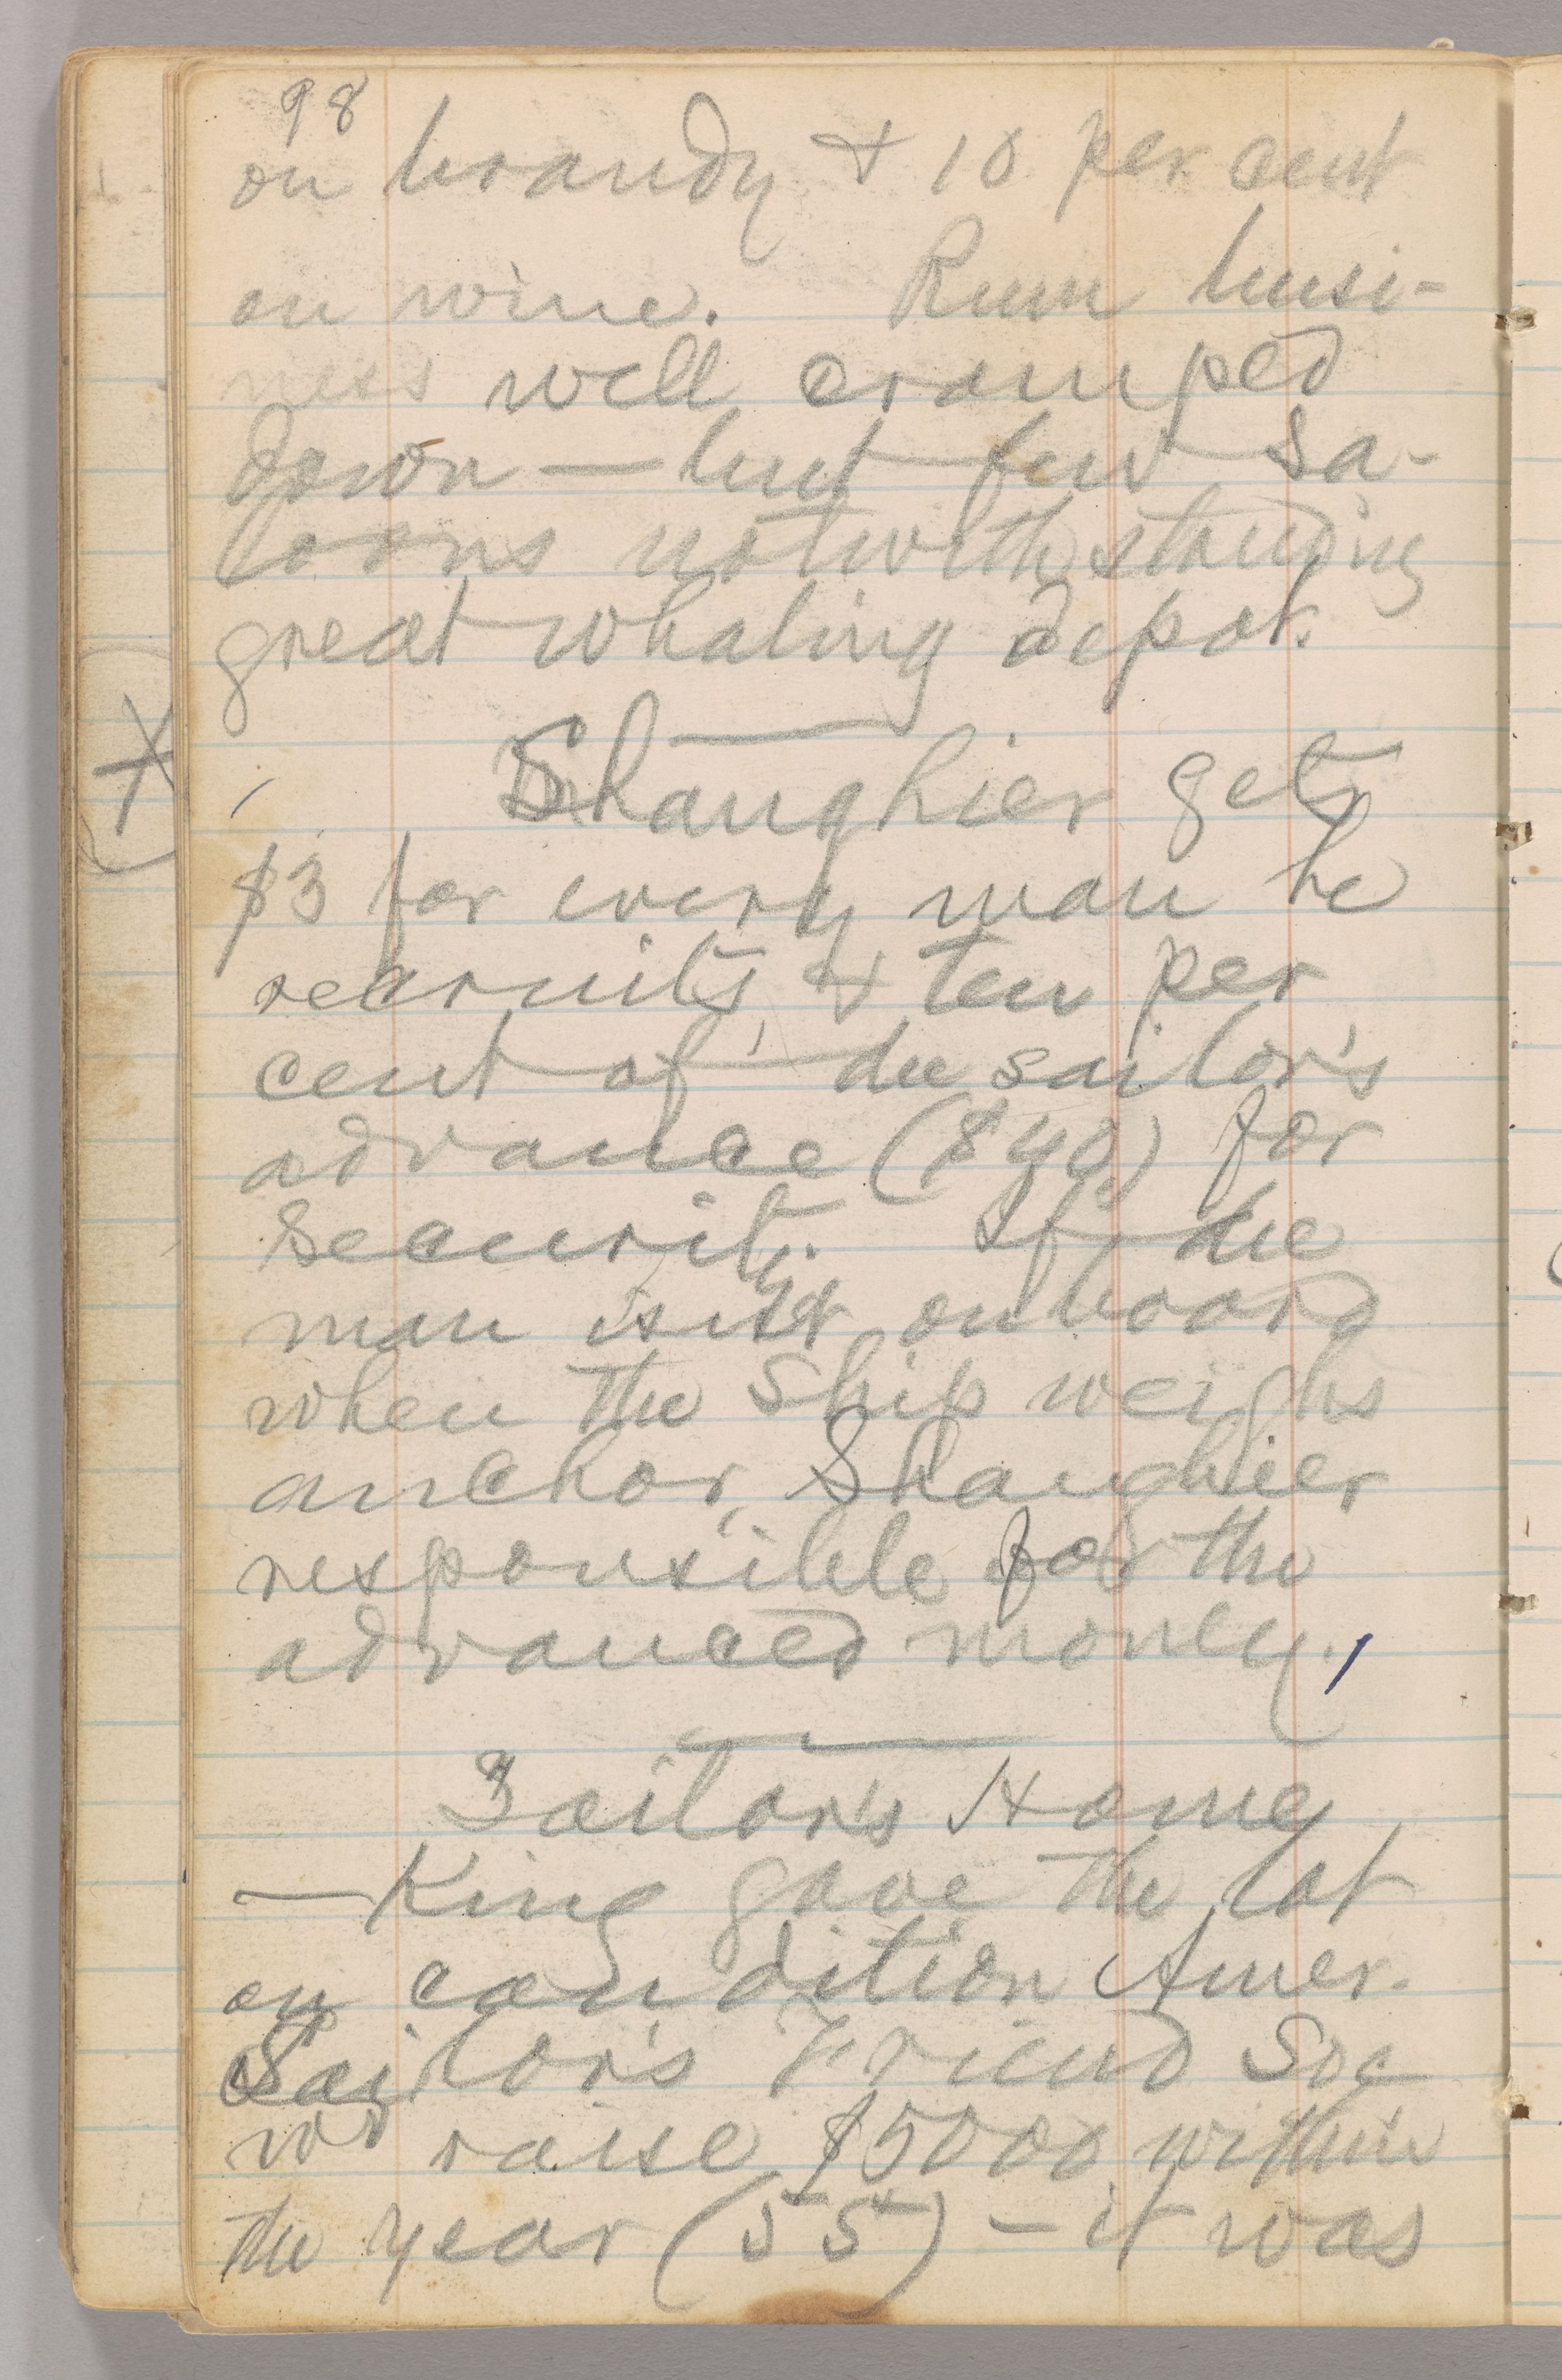 98
on brandy & 10 per cent
on wine. Rum busi-
ness well cramped
down — but few sa-
loons notwithstanding
great whaling depot.
Shanghier gets
$3 for every man he
recruits, & ten per
cent of the sailor's
advance ($40) for
security. If the
man isn't onboard
when the ship weighs
anchor, Shanghier
responsible for the
advanced money.
Sailor's Home
— King gave the lot
on condition Amer.
Sailor's Friend Soc
wd raise $5000 within
the year (55) – it was